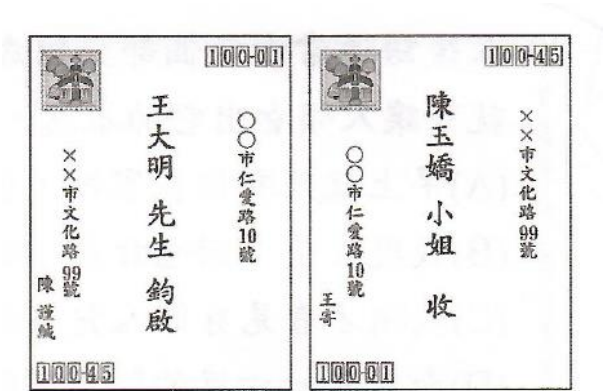 100-01
○○市仁愛路10號
王大明 先生 鈞啟
××市文化路99號
陳 謹緘
100-45
100-45
××市文化路99號
陳玉嬌 小姐 收
○○市仁愛路10號
王寄
100-01